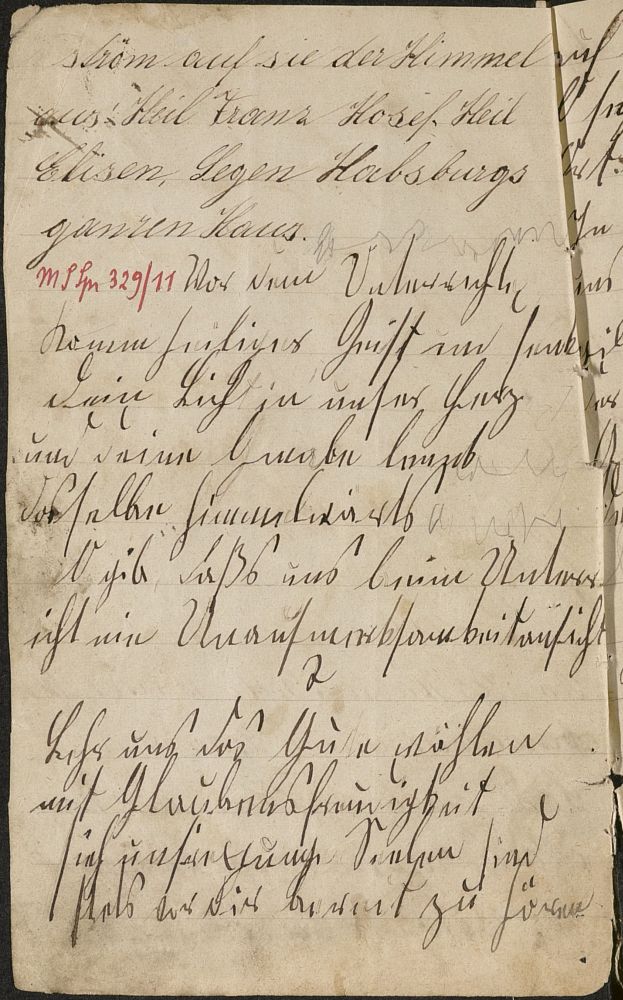 ström auf sie der Himmel
aus! Heil Franz Josef Heil
Elisen, Segen Habsburgs
ganzen Haus.
MS Sp 329/11 Vor dem Unterrichte
Komm heiliges Geist un senke
Dein Licht in unser Herz
und deine Gnade
dasselbe himmelwärts
O gib, daß uns beim Unterr
icht nie Unaufmerksamkeit anficht
2
Lehr uns das Gute wählen
mit Glaubensfreudigkeit
sieh unsre junge Seelen sind
stets vor dir bereit zu hören